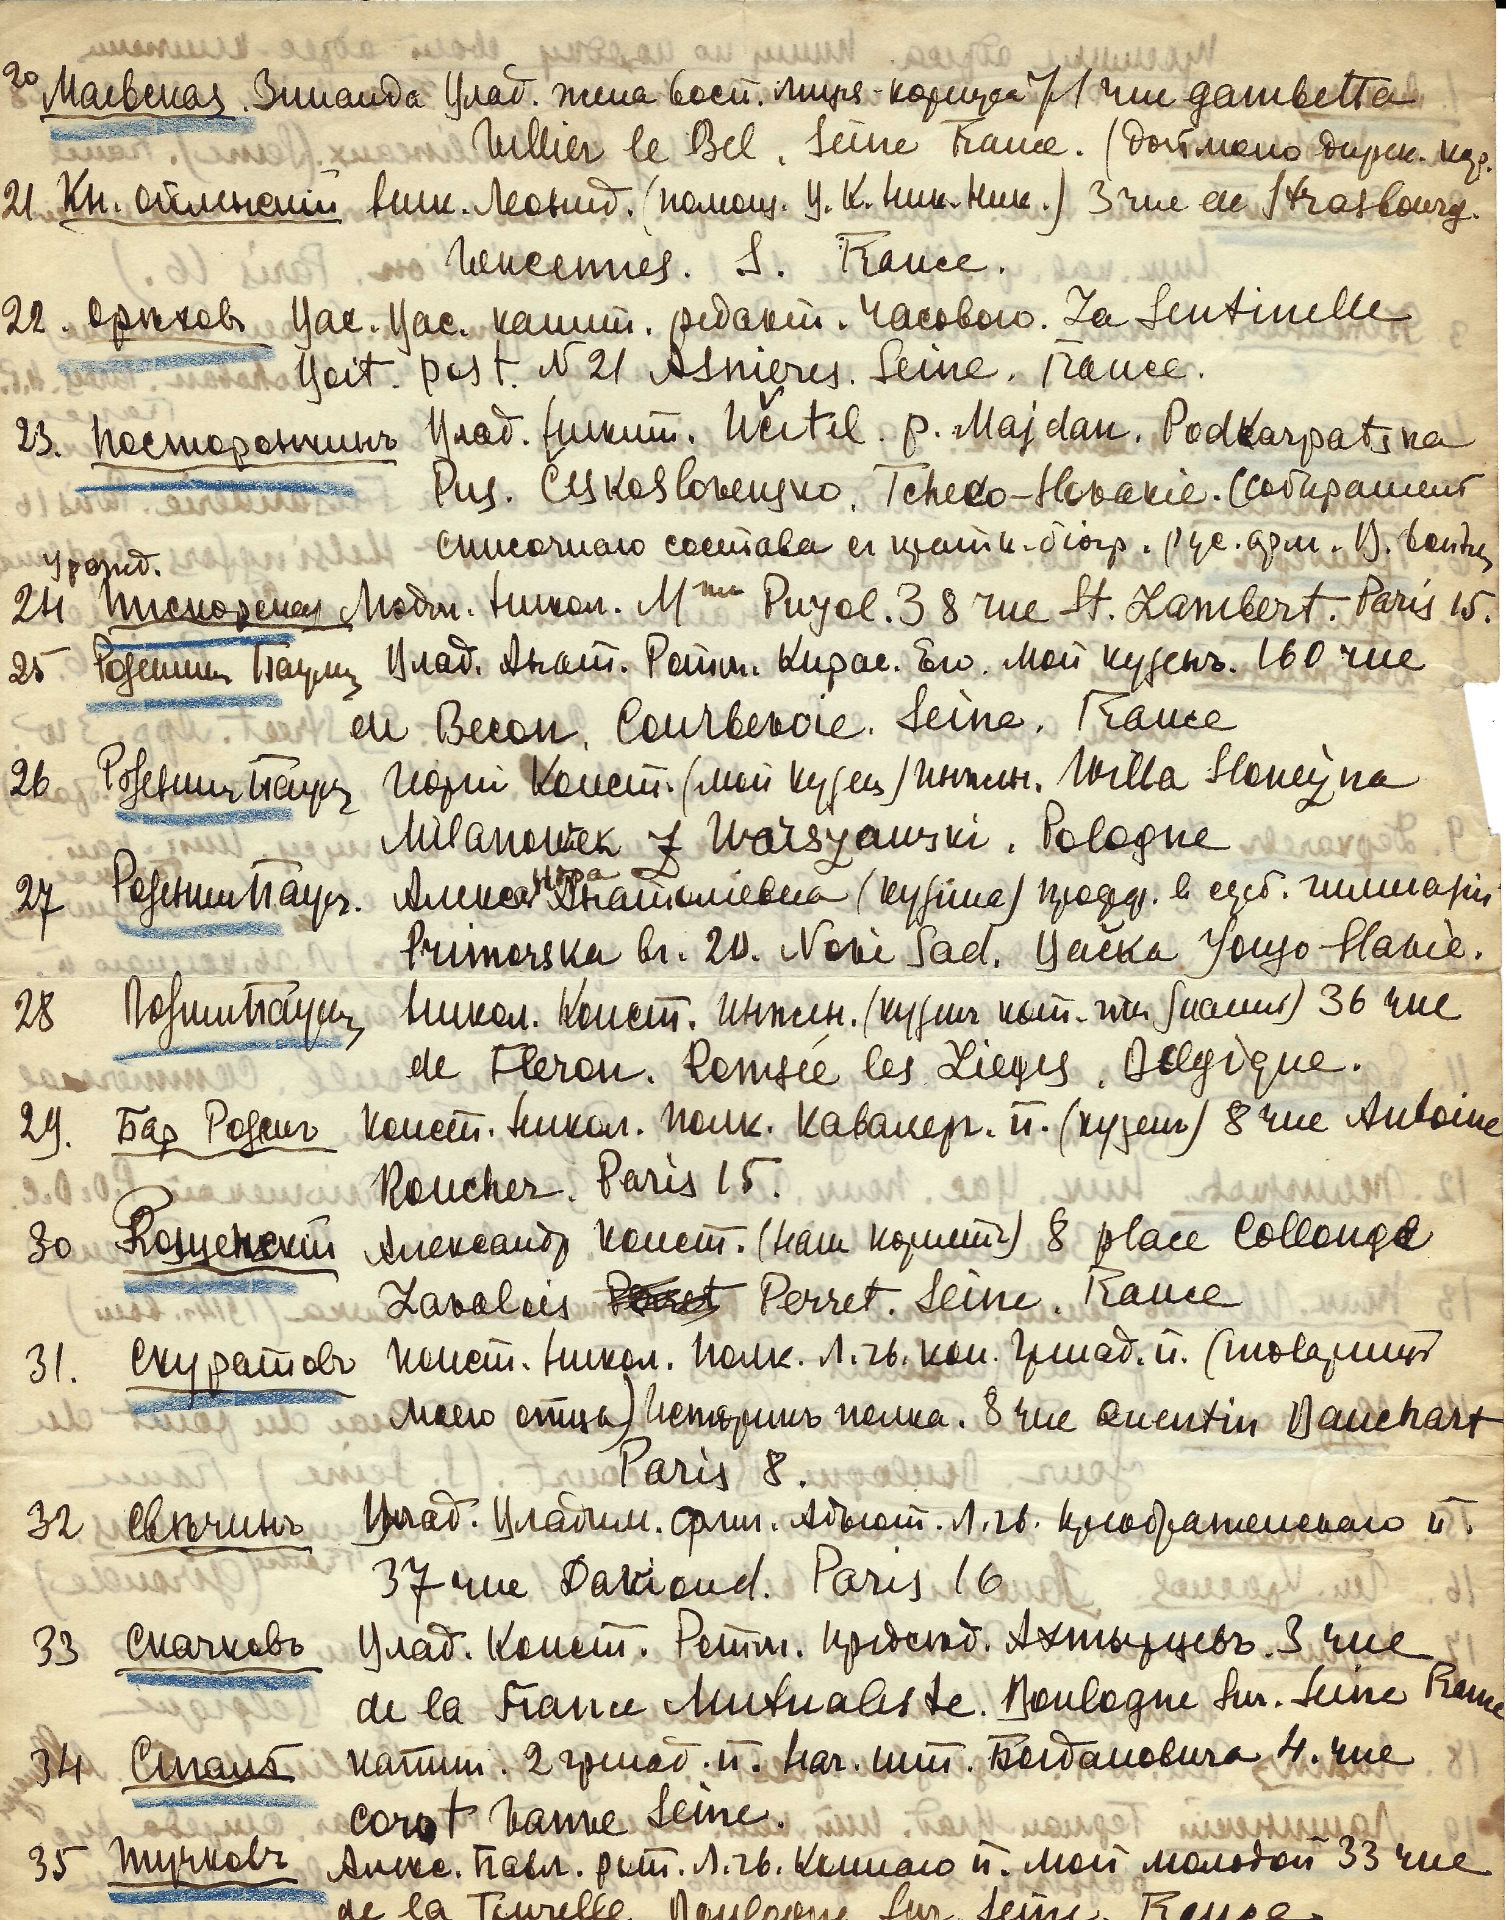 20 Маевская. Зинаида Влад. жена восп. лицея-корпуса 71 rue gambetta
Villier le Bel, Seine France. (
21 Кн. Оболенскій Ник. Леонид. (помощ. В. К. Ник. Ник.) 3 rue de Strasbourg.
Vencennes. S. France.
22. Орѣховъ Вас. Вас. капит. редакт. Часового. La Sentinelle
Boit. post. N 21 Asnieres. Seine. France.
23. Посторонкинъ Влад. Никит. Učitel. p. Majdan. Podkarpatska
Rus. Československo, Tcheco-Slovakie. (собираетъ
списочнаго состава и кратк. біогр. рус. арм. В. войны
Урожд.
24 Пискорская Людм. Никол. Mme Pujol. 38 rue St. Lambert. Paris 15.
25 Розеншильдъ Паулинъ Влад. Анат. Ротм. Кирас. Его. Мой кузенъ. 160 rue
de Becon, Courbevoie. Seine. France
26 Розеншильдъ Паулинъ Конст. (мой кузенъ) инжен. Willa Słoneczna
Milanowek z Warszawski. Pologne
27 Розеншильдъ Паулинъ. Александра Анатоліевна (кузина) в серб. гимназіи
Primorska br. 20. Novi Sad. Bačka Yougo-Slavie.
28 Розеншильдъ Паулинъ Никол. Конст. инжен. (кузенъ ) 36 rue
de Fleron. Romsée les Lieges, Belgique.
29. Бар Розенъ Конст. Никол. полк. Кавалерг. п. (кузенъ) 8 rue Antoine
Roucher. Paris 15.
30 Александр Конст. (наш корнетъ) 8 place Collonge
Lavalois Perret. Seine. France
31. Скуратовъ Конст. Никол. полк. Л. гв. кон. гренад. п. (товарищъ
моего отца) Историкъ полка. 8 rue Quentin Bauchart
Paris 8.
32 Свѣчинъ Влад. Владим. флиг. Адъют. Л. гв. Преображенскаго п.
37 rue Davioud. Paris 16
33 Скачковъ Влад. Конст. Ротм. предсѣд. Ахтырцевъ. 3 rue
de la France Mutualiste. Boulogne Sur. Seine France
34 капит. 2 гренад. п. нач. шт. Богдановича 4. rue
corot Vanve Seine.
35 Тучковъ Алекс. Павл. рот. Л. гв. Коннаго п. мой молодой 33 rue
de la Tourelle. Boulogne Sur Seine. France.